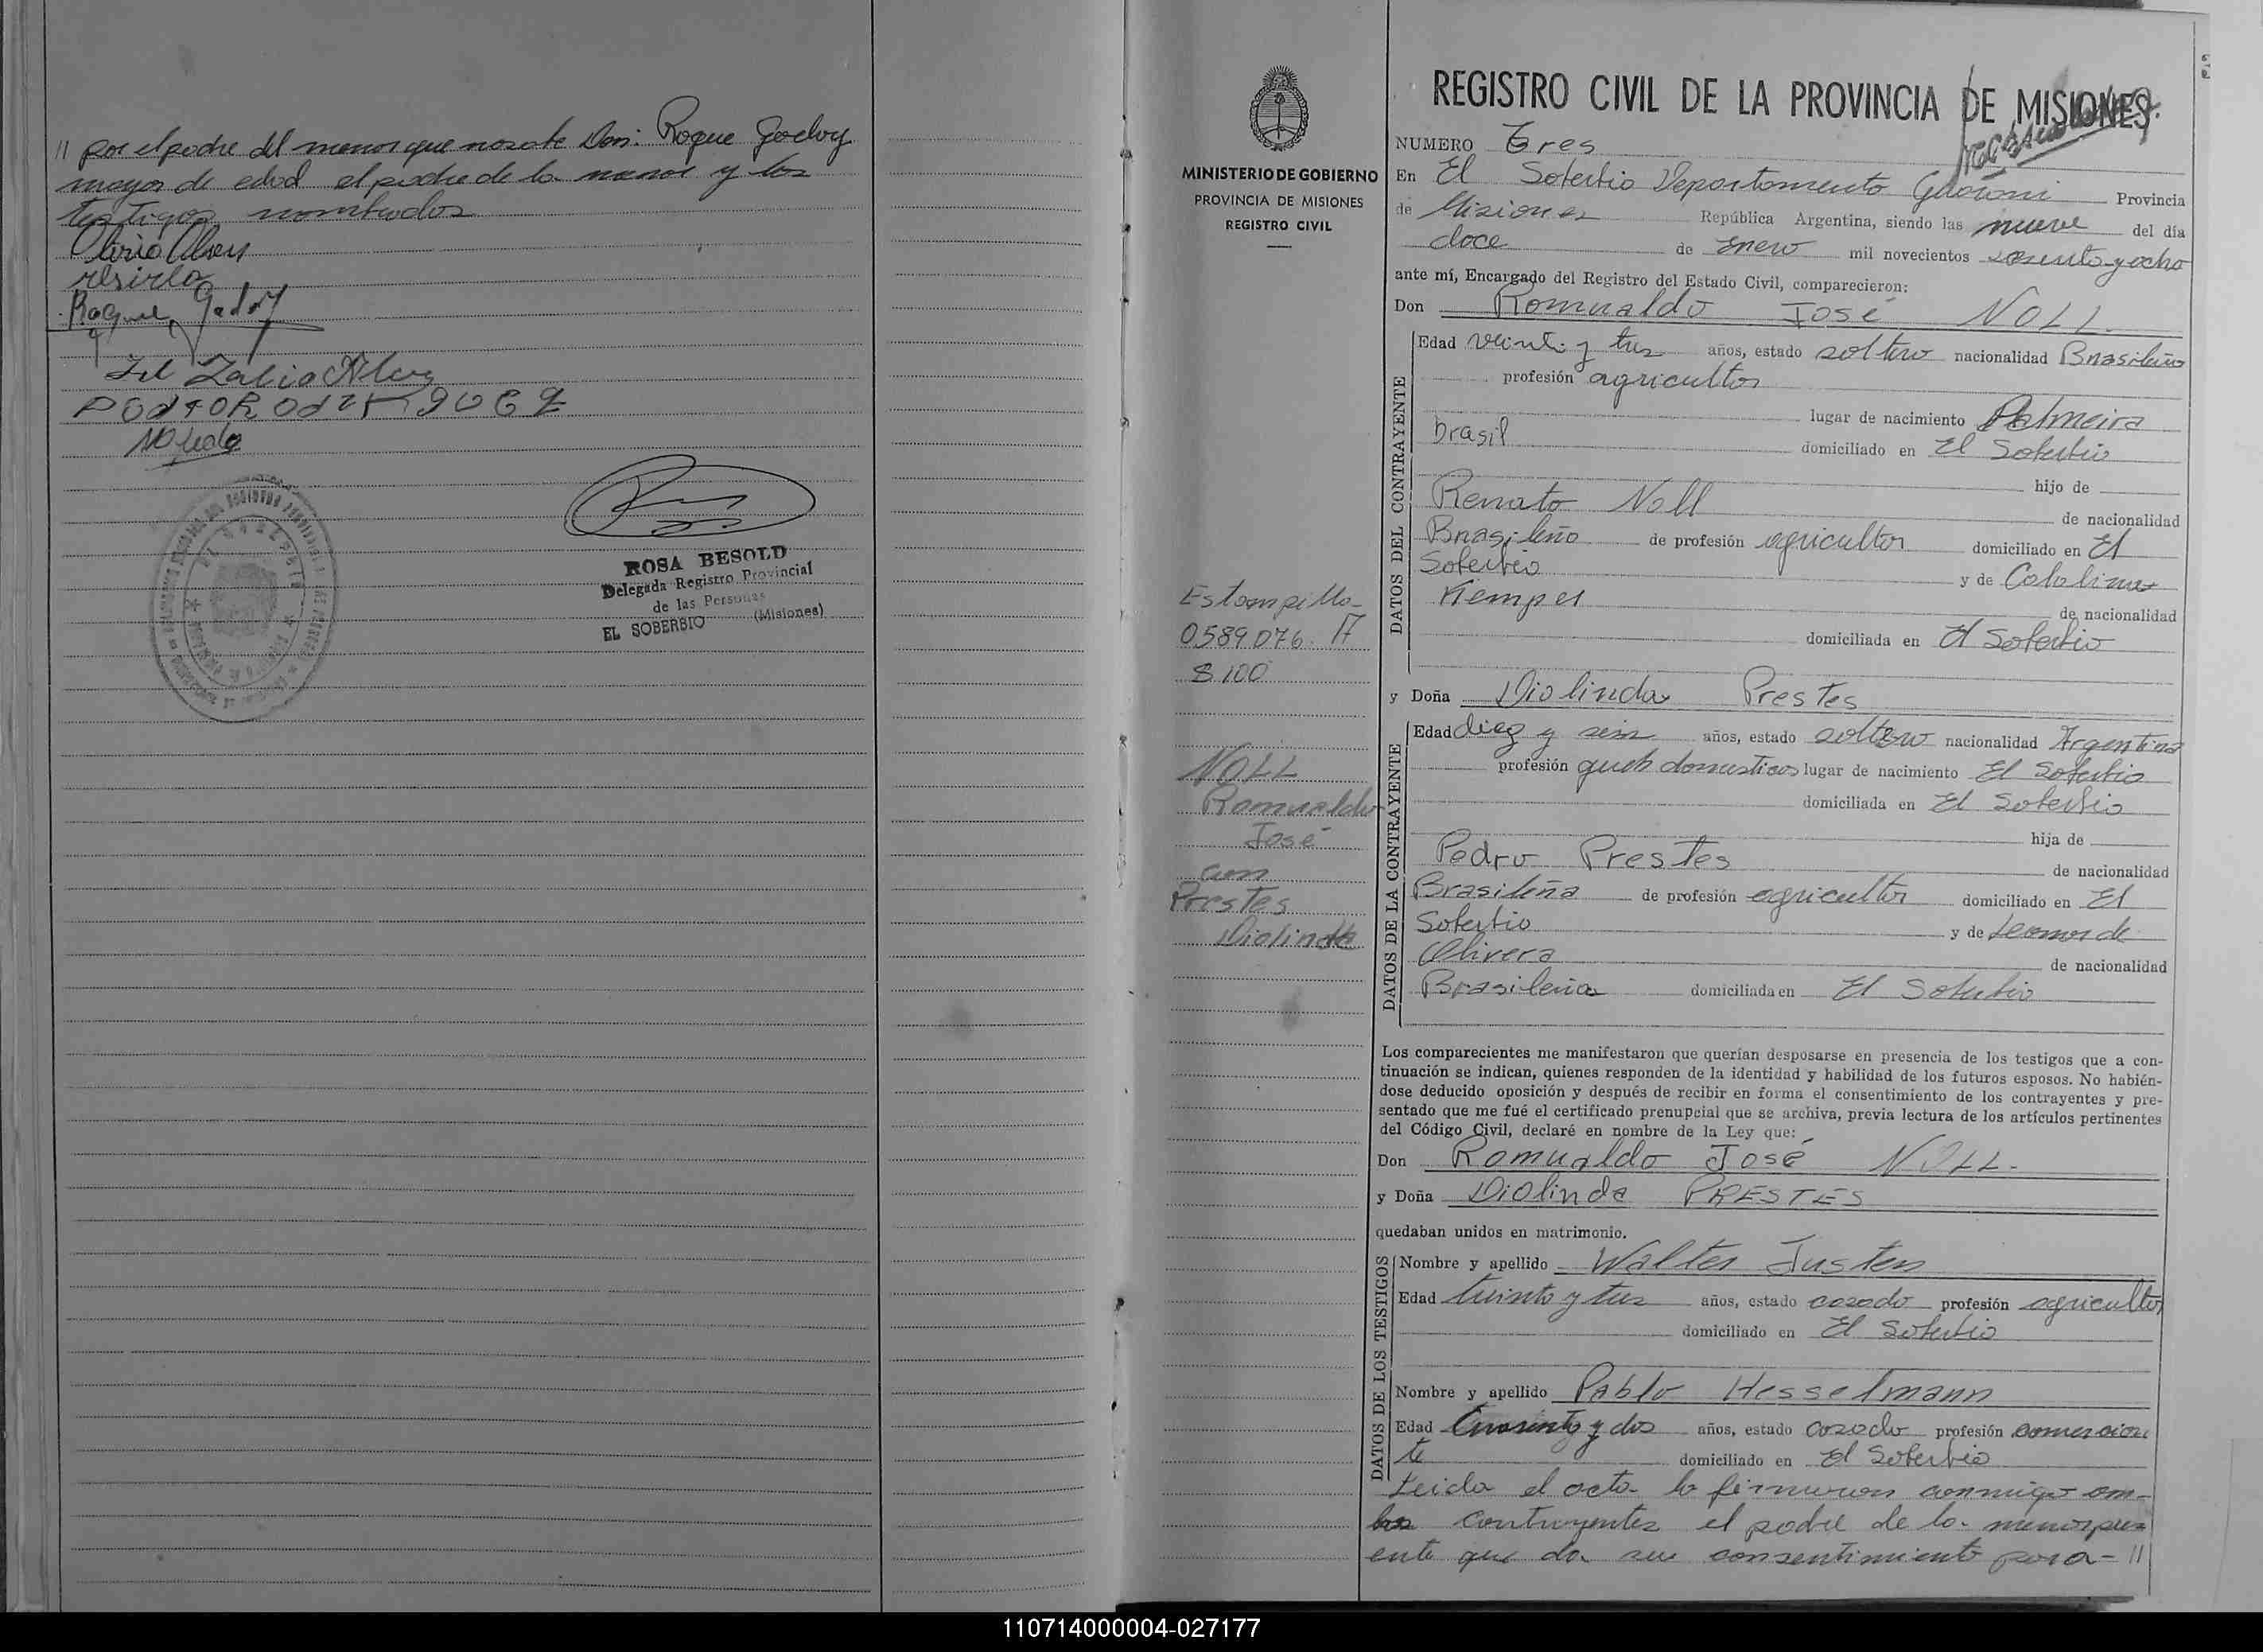 // por el padre del menor que nosabe Don: Roque Godoy
mayor de edad el padre de la menor y los
testigos nombrados
Olirio Alves
Roque Godoy
ROSA BESOLD
Delegada Registro Provincial
de las Personas
EL SOBERBIO (Misiones)
MINISTERIO DE GOBIERNO
PROVINCIA DE MISIONES
REGISTRO CIVIL
Estampilla
0589.076 A
$ 100
NOLL
Romualdo
José
con
Prestes
Diolinda
REGISTRO CIVIL DE LA PROVINCIA DE MISIONES
NUMERO Tres
En El Soberbio Departamento Guaraní Provincia
de Misiones República Argentina, siendo las nueve del día
doce de Enero mil novecientos sesenta y ocho
ante mí, Encargado del Registro del Estado Civil, comparecieron:
Don Romualdo José NOLL.
DATOS DEL CONTRAYENTE
Edad veinti y tres años, estado soltero nacionalidad Brasileño
profesión agricultor
lugar de nacimiento Palmeira
brasil domiciliado en El Soberbio
hijo de
Renato Noll de nacionalidad
Brasileño de profesión agricultor domiciliado en El
Soberbio y de Catalina
Kemper de nacionalidad
domiciliada en El Soberbio
y Doña Diolinda Prestes
DATOS DE LA CONTRAYENTE
Edad diez y seis años, estado soltero nacionalidad Argentina
profesión queh domesticos lugar de nacimiento El Soberbio
domiciliada en El Soberbio
hija de
Pedro Prestes de nacionalidad
Brasileña de profesión agricultor domiciliado en El
Soberbio y de Leonor de
Olivera de nacionalidad
Brasileña domiciliada en El Soberbio
Los comparecientes me manifestaron que querían desposarse en presencia de los testigos que a con-
tinuación se indican, quienes responden de la identidad y habilidad de los futuros esposos. No habién-
dose deducido oposición y después de recibir en forma el consentimiento de los contrayentes y pre-
sentado que me fué el certificado prenupcial que se archiva, previa lectura de los artículos pertinentes
del Código Civil, declaré en nombre de la Ley que:
Don Romualdo José NOLL.
y Doña Diolinda PRESTES
quedaban unidos en matrimonio.
DATOS DE LOS TESTIGOS
Nombre y apellido Walter Justen
Edad treinta y tres años, estado casado profesión agricultor
domiciliado en El Soberbio
Nombre y apellido Pablo Hesselmann
Edad Cuarenta y dos años, estado casado profesión comercian
te domiciliado en El Soberbio
Leida el acta la firmaron conmigo am-
bos contrayentes el padre de la menor pres
ente que da su consentimiento para- //
110714000004-027177